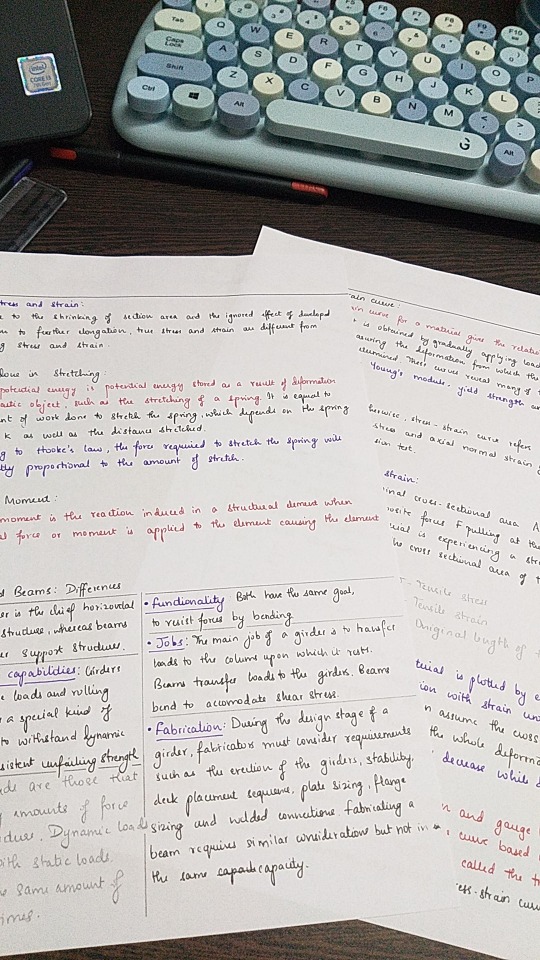 intel
CORE i3
F5 F6 F7 F8 F9 F10
Tab Q W E R T Y U I O P
Caps Lock A S D F G H J K L
Shift Z X C V B N M
Ctrl Alt Alt
tress and Strain:
e to the shrinking of section area and the ignored effect of developed
n to further elongation, true stress and strain are different from
g stress and strain.
done in Stretching:
potential energy is potential energy stored as a result of deformation
astic object, such as the stretching of a spring. It is equal to
nt of work done to stretch the spring, which depends on the spring
k as well as the distance stretched.
g to Hooke's law, the force required to stretch the spring will
tly proportional to the amount of stretch.
Moment:
moment is the reaction induced in a structural element when
al force or moment is applied to the element causing the element
d Beams: Differences
er is the chief horizontal
structure, whereas beams
er support structure.
capabilities: Girders
e loads and rolling
e a special kind of
to withstand dynamic
sistent unfailing strength
ads are those that
amounts of force
duce. Dynamic loads
with static loads.
he same amount of
times.
• Functionality Both have the same goal,
to resist forces by bending.
• Jobs: The main job of a girder is to transfer
loads to the columns upon which it rests.
Beams transfer loads to the girders. Beams
bend to accomodate shear stress.
• Fabrication: During the design stage of a
girder, fabricators must consider requirements
such as the erection of the girders, stability,
deck placement sequence, plate sizing, flange
sizing and welded connections. Fabricating a
beam requires similar considerations but not in
the same capacity.
ain curve:
in curve for a material gives the relatio
is obtained by gradually applying load
asuring the deformation from which the
etermined. These curves reveal many of t
Young's module, yield strength an
herwise, stress-strain curve refers
stress and axial normal strain
sion test.
strain:
inal cross-sectional area A
posite forces F pulling at the
rial is experiencing a stre
he cross sectional area of t
Tensile stress
Tensile strain
Original length of
terial is plotted by e
ion with strain unt
n assume the cross
the whole deforma
decrease while d
n and gauge
curve based
called the tr
ess-strain curv